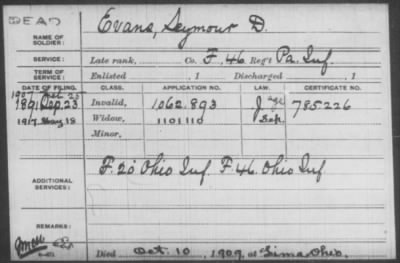 DEAD
NAME OF SOLDIER: Evans, Seymour D.
SERVICE: Late rank, Co. F. 46 Reg't Pa. Inf.
TERM OF SERVICE: Enlisted , 1 Discharged , 1
DATE OF FILING. CLASS. APPLICATION NO. LAW. CERTIFICATE NO.
1907
1891 Sep. 23 Invalid, 1062.893 J 785226
1917 May 18 Widow, 1101110
Minor,
ADDITIONAL SERVICES: F. 20 Ohio Inf. F. 46 Ohio Inf
REMARKS:
Died Oct. 10, 1909, at Lima Ohio.